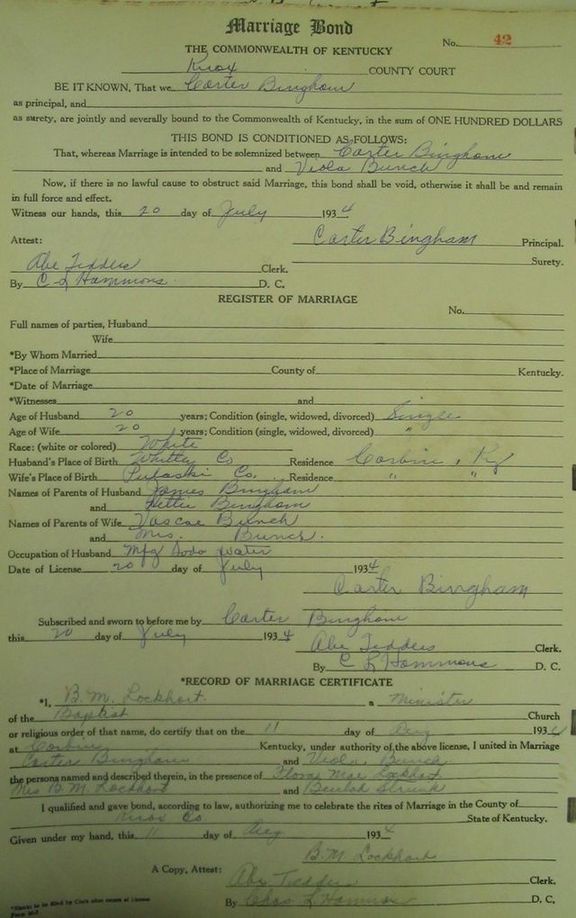 Marriage Bond
THE COMMONWEALTH OF KENTUCKY
No. 42
Knox COUNTY COURT
BE IT KNOWN, That we Carter Bingham
as principal, and
as surety, are jointly and severally bound to the Commonwealth of Kentucky, in the sum of ONE HUNDRED DOLLARS
THIS BOND IS CONDITIONED AS FOLLOWS:
That, whereas Marriage is intended to be solemnized between Carter Bingham
and Viola Bunch
Now, if there is no lawful cause to obstruct said Marriage, this bond shall be void, otherwise it shall be and remain
in full force and effect.
Witness our hands, this 20 day of July 1934
Attest: Carter Bingham Principal.
Surety.
Abe Tedders Clerk.
By C L Hammons D. C.
REGISTER OF MARRIAGE
No.
Full names of parties, Husband
Wife
*By Whom Married
*Place of Marriage County of Kentucky.
*Date of Marriage
*Witnesses and
Age of Husband 20 years; Condition (single, widowed, divorced) Single
Age of Wife 20 years; Condition (single, widowed, divorced) "
Race: (white or colored) White
Husband's Place of Birth Whitley Co Residence Corbin, Ky
Wife's Place of Birth Pulaski Co. Residence " "
Names of Parents of Husband James Bingham
and Hettie Bingham
Names of Parents of Wife Vascoe Bunch
and Mrs. Bunch.
Occupation of Husband Mfg Soda Water
Date of License 20 day of July 1934
Carter Bingham
Subscribed and sworn to before me by Carter Bingham
this 20 day of July 1934
Abe Tedders Clerk.
By C L Hammons D. C.
*RECORD OF MARRIAGE CERTIFICATE
*I, B. M. Lockhart a Minister
of the Baptist Church
or religious order of that name, do certify that on the 11 day of Aug 1934
at Corbin Kentucky, under authority of the above license, I united in Marriage
Carter Bingham and Viola Bunch
the persons named and described therein, in the presence of Flora Mae Lockhart
Mrs B. M. Lockhart and Beulah Strunk
I qualified and gave bond, according to law, authorizing me to celebrate the rites of Marriage in the County of
Knox Co State of Kentucky.
Given under my hand, this 11 day of Aug 1934
B. M. Lockhart
A Copy, Attest: Abe Tedders Clerk.
By Chas L Hammons D. C.